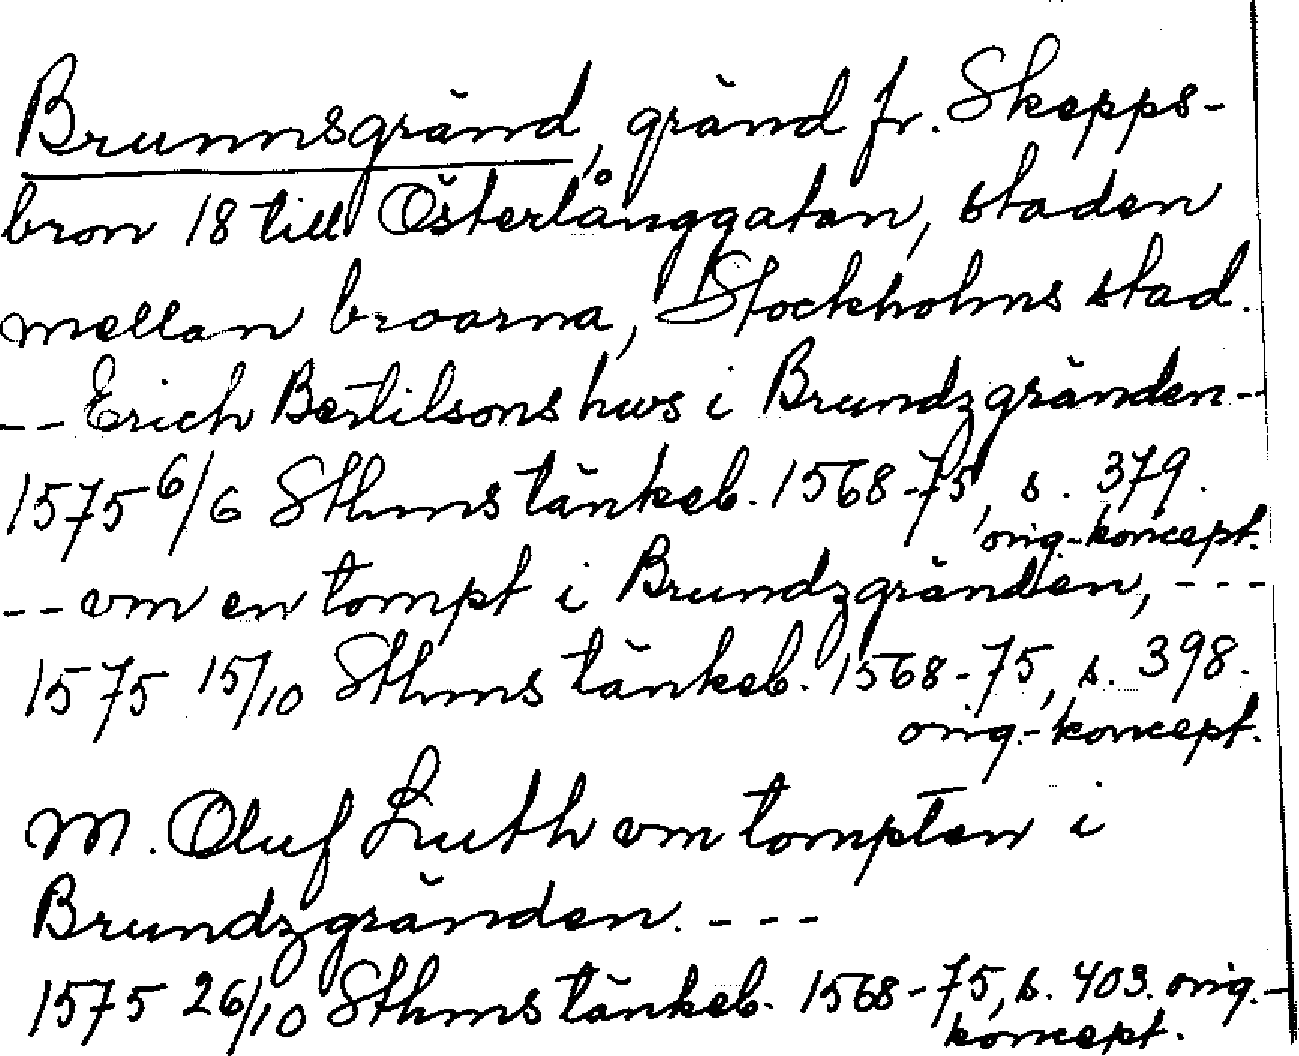 Brunnsgränd, gränd fr. Skepps-
bron 18 till Österlånggatan, staden
mellan broarna, Stockholms stad.
-- Erich Bertilsons hws i Brundzgränden--
1575 6/6 Sthms tänkeb. 1568-75, s. 379.
orig.-koncept.
-- vm en tompt i Brundzgränden, ---
1575 15/10 Sthms tänkeb. 1568-75, s. 398.
orig.-koncept.
M. Oluf Luth vm tompten i
Brundzgränden. ---
1575 26/10 Sthms tänkeb. 1568-75, s. 403. orig.-
koncept.